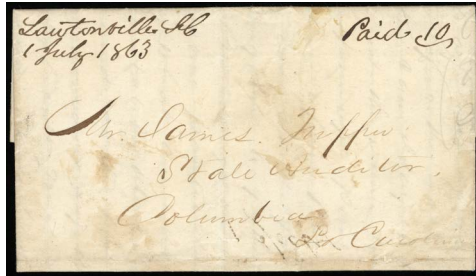 Lawtonville SC
1 July 1863
Paid 10
Mr. James Tupper
State Auditor,
Columbia
So Carolina